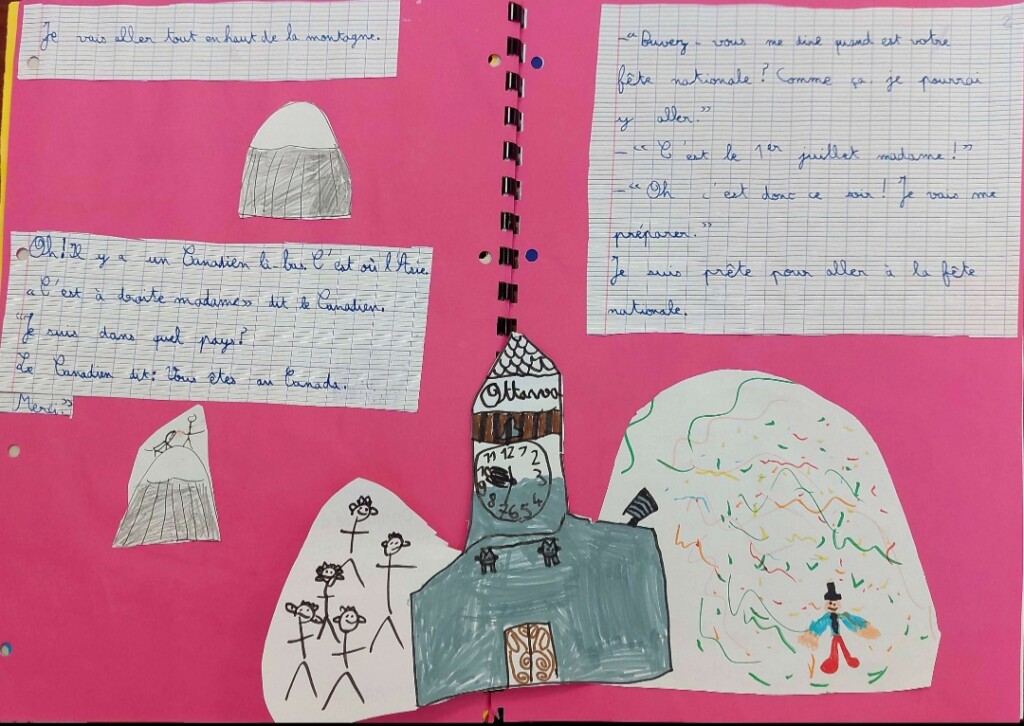 Je vais aller tout en haut de la montagne.
Oh! Il y a un Canadien là-bas. C'est où l'Asie
"C'est à droite madame" dit le Canadien.
"Je suis dans quel pays?
Le Canadien dit: Vous êtes au Canada.
Merci"
2
-"Puvez-vous me dire quand est votre
fête nationale? Comme ça je pourrai
y aller."
-"C'est le 1er juillet madame!"
-"Oh c'est donc ce soir! Je vais me
préparer."
Je suis prête pour aller à la fête
nationale.
Ottawa
11 12 1 2 3 4 5 6 7 8 9 10